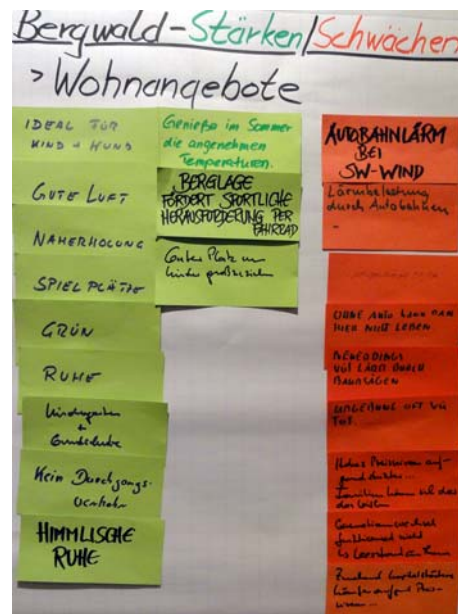 Bergwald-Stärken/Schwächen
> Wohnangebote
IDEAL FÜR
KIND + HUND
GUTE LUFT
NAHERHOLUNG
SPIELPLÄTZE
GRÜN
RUHE
Kindergarten
+
Grundschule
Kein Durchgangs-
verkehr
HIMMLISCHE
RUHE
Genieße im Sommer
die angenehmen
Temperaturen.
BERGLAGE
FÖRDERT SPORTLICHE
HERAUSFORDERUNG PER
FAHRRAD
Guter Platz um
Kinder großzuziehen
AUTOBAHNLÄRM
BEI
SW-WIND
Lärmbelastung
durch Autobahnen
-
OHNE AUTO KANN MAN
HIER NICHT LEBEN
NEUERDINGS
VIEL LÄRM DURCH
BAUMSÄGEN
UMGEBUNG OFT WIE
TOT...
Hohes Preisniveau auf-
Familien
das
Generationswechsel
funktioniert nicht
Leerstand
Zunehmend
Häuser aufgrund Preis-
niveau...